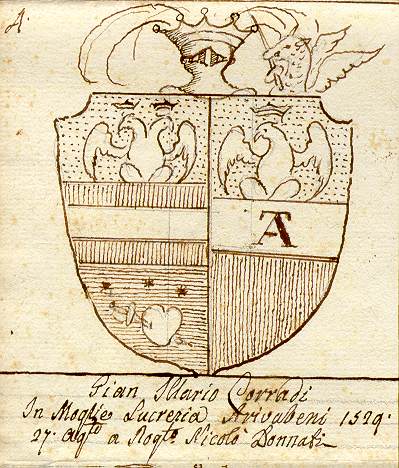 4.
TA
Gian Mario Corradi
In Moglie Lucrezia Arivabeni 1529.
27. Agto a Rogto Nicolò Donnati